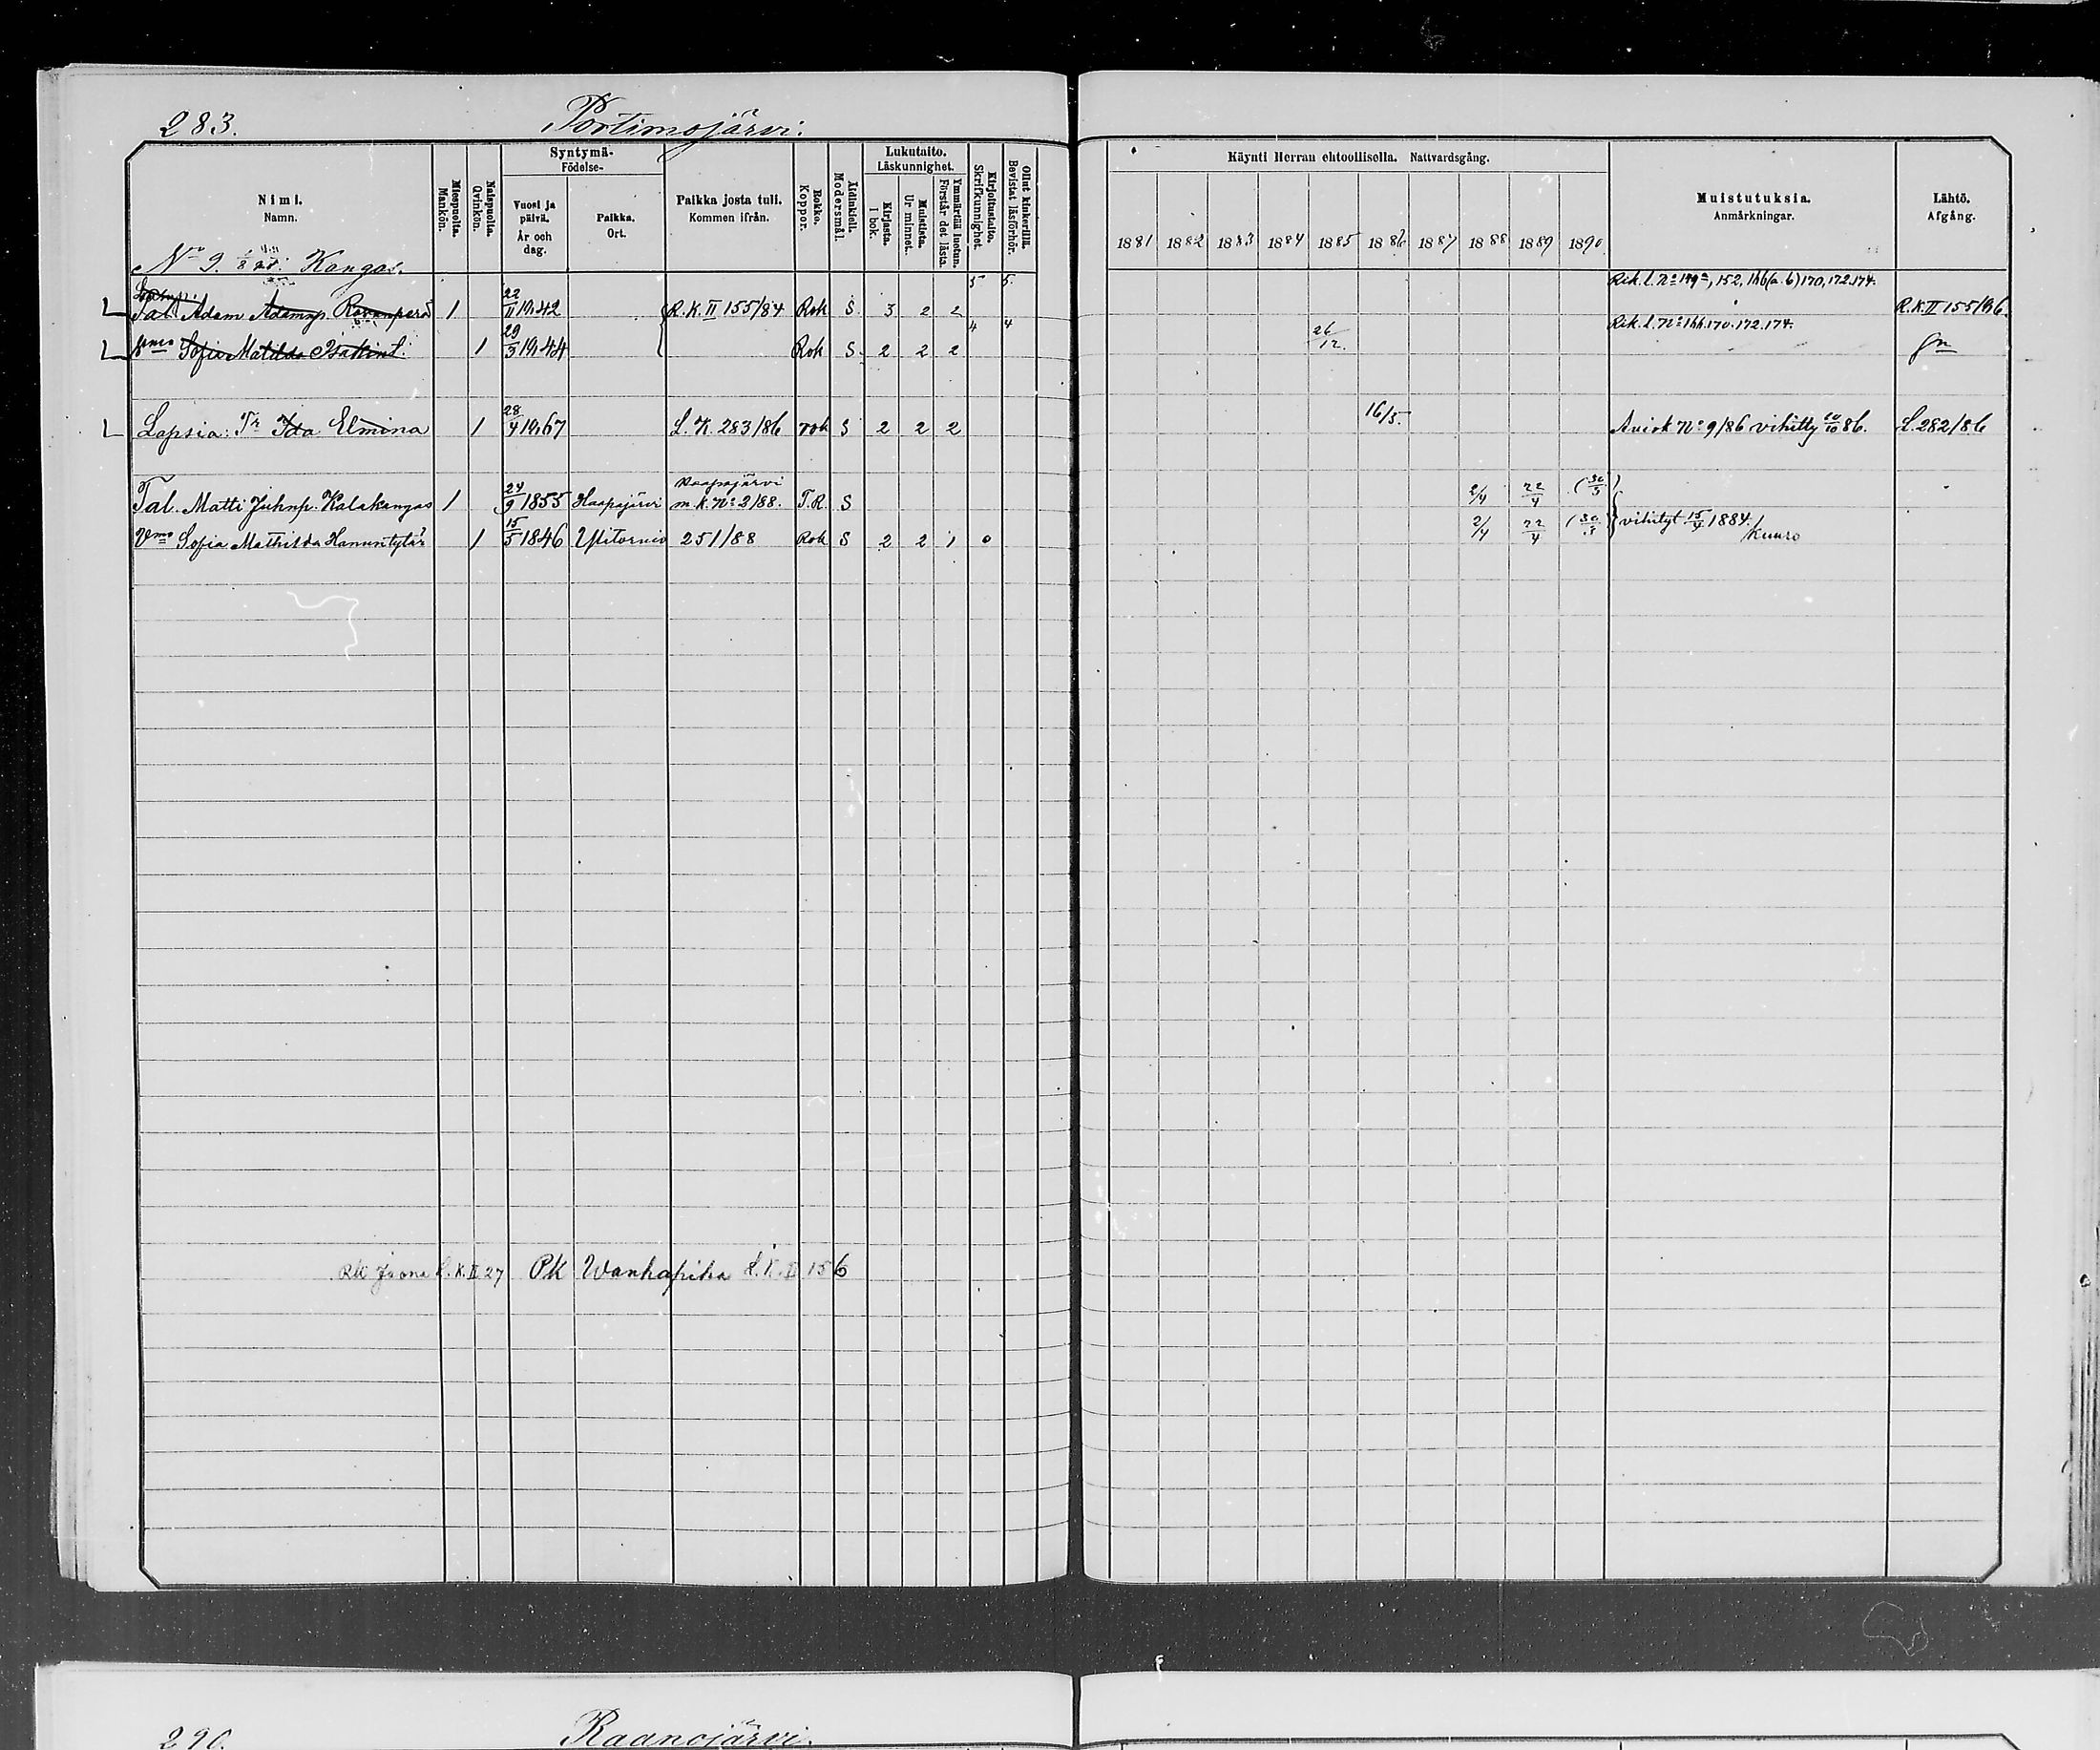 283. Portimojärvi.
Nimi. Namn.
Miespuolia. Mankön.
Naispuolia. Qvinkön.
Syntymä- Födelse-
Vuosi ja päivä. År och dag.
Paikka. Ort.
Paikka josta tuli. Kommen ifrån.
Rokko. Koppor.
Äidinkieli. Modersmål.
Lukutaito. Läskunnighet.
Kirjasta. I bok.
Muistista. Ur minnet.
Ymmärtää luetun. Förstår det lästa.
Kirjoitustaito. Skrifkunnighet.
Ollut kinkerillä. Bevistat läsförhör.
Käynti Herran ehtoollisella. Nattvardsgång.
1881 1882 1883 1884 1885 1886 1887 1888 1889 1890
Muistutuksia. Anmärkningar.
Lähtö. Afgång.
No 9. Kangas.
Tal. Adam Adamp. Rovanperä 1 22/11 1842 R.K. II 155/84 Rok S. 3 2 2 5 5. Rik. l. No 152, 170, 172. 174. R.K. II 155/86.
Vmo Sofia Matilda Isakint. 1 29/3 1844 Rok S. 2 2 2 4 4 26/12. Rik. l. No 170. 172. 174.
Lapsia: Tr Ida Elmina 1 28/4 1867 L. K. 283/86 rok S 2 2 2 16/5. Aviok No 9/86 vihitty 86. L. 282/86
Tal. Matti Juhnp. Kalakangas 1 24/9 1855 Haapajärvi Haapajärvi m.k. No 2/88. T.R. S 2/4 22/4 (30/3)
Vmo Sofia Mathilda Hanuntytär 1 15/5 1846 Ylitornio 251/88 Rok S 2 2 1 0 2/4 22/4 (30/3) vihityt 15/4 1884. /Kuuro
R.K. II 27 PK Wanhapiha R.K. II 156
290. Raanojärvi.